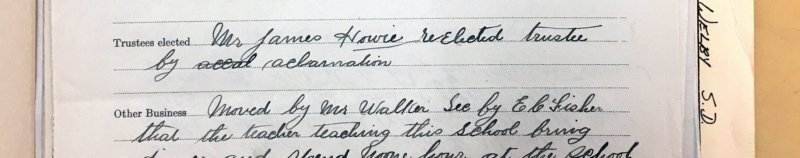 Trustees elected Mr James Howie reElected trustee
by accal aclamation
Other Business Moved by Mr Walker Sec by E C Fisher
that the teacher teaching this School bring
and spend noone hour at the School
WELBY S.D